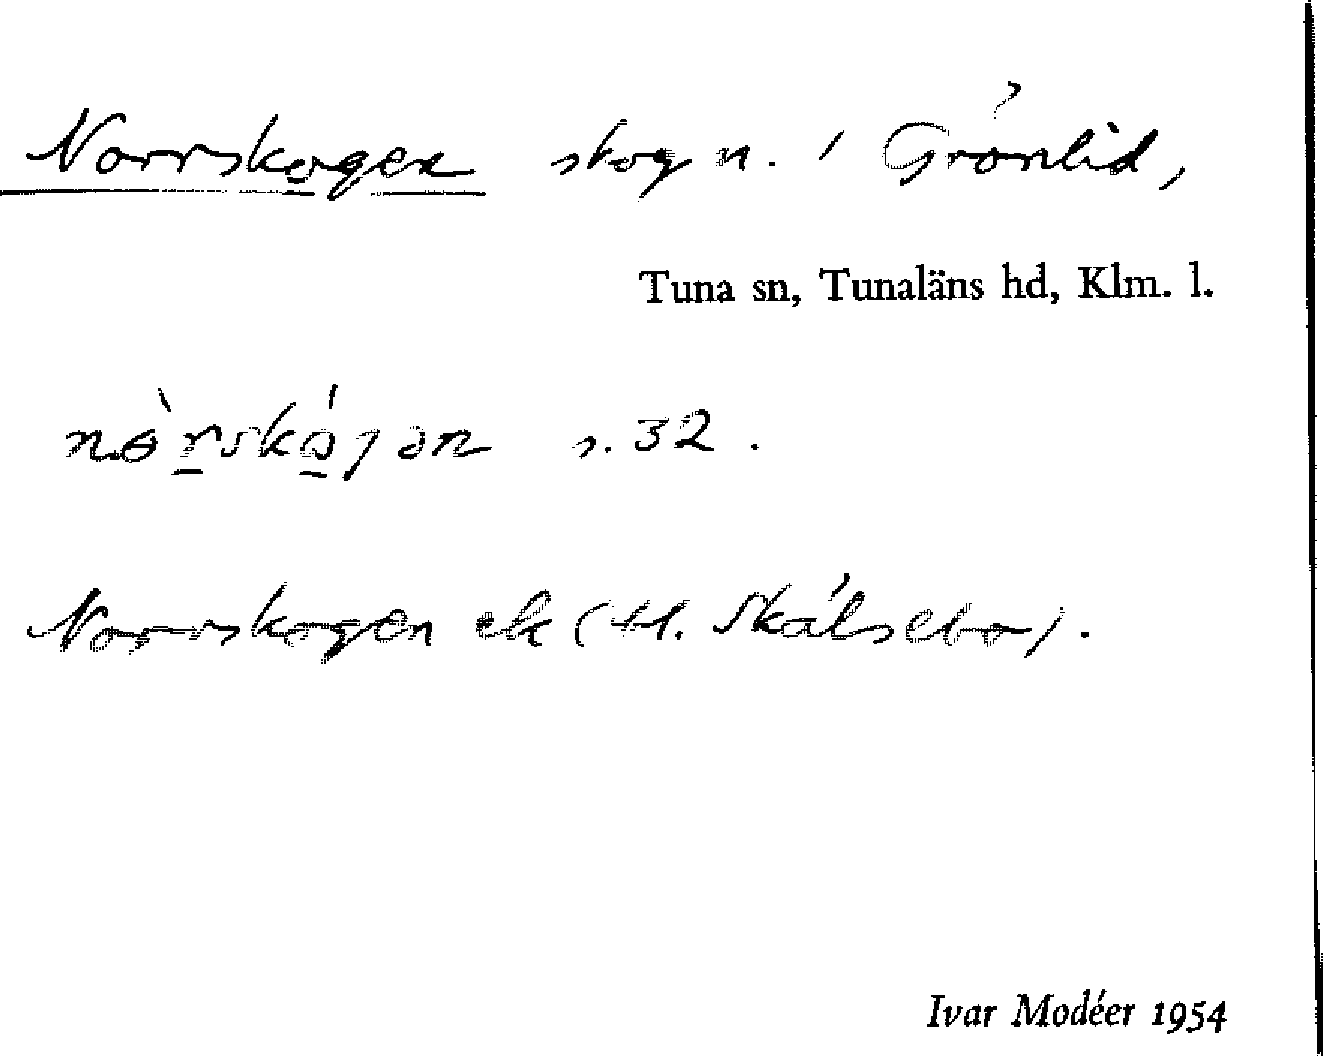 Norrskogen skog n. i Grönlid,
Tuna sn, Tunaläns hd, Klm. l.
s. 32.
Norrskogen ek (til. Skälsebo).
Ivar Modéer 1954